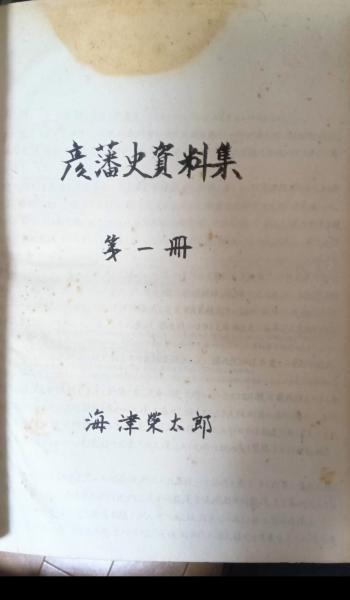 彦藩史資料集
第一冊
海津榮太郎